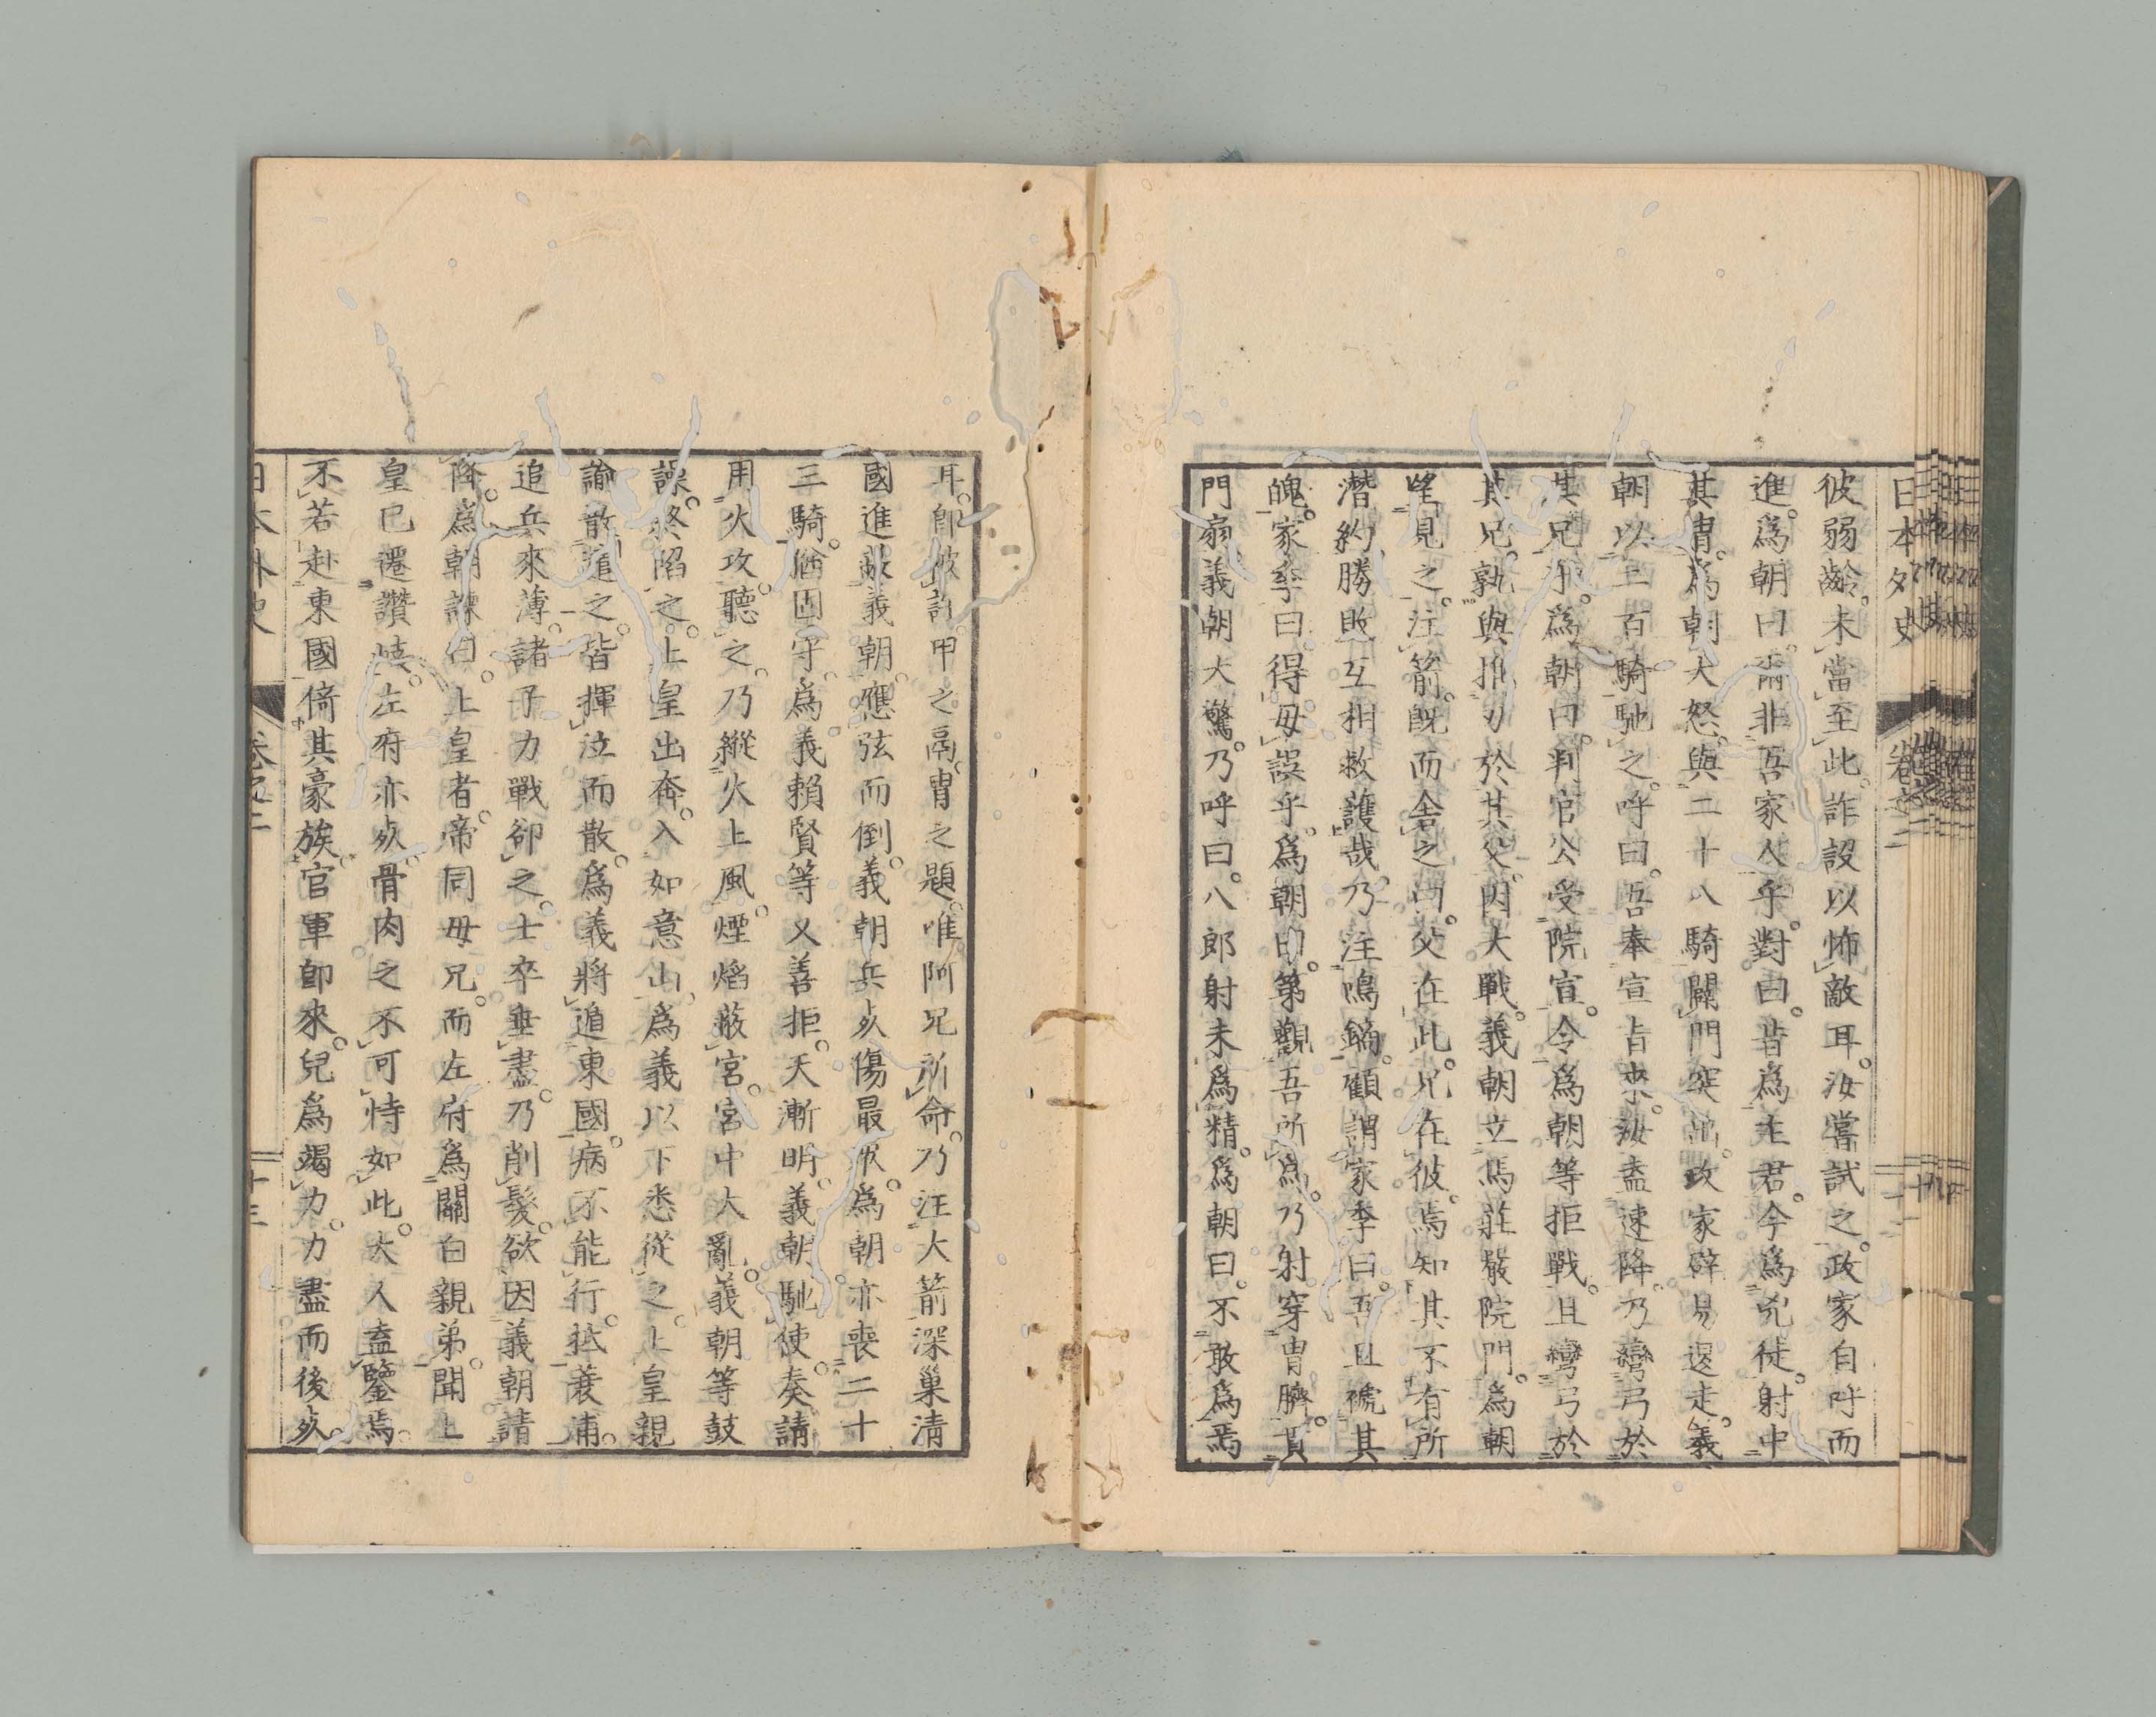 日本外史
卷之二
彼弱齡未當至此。詐設以怖敵耳。汝嘗試之。政家自呼而
進。爲朝曰。爾非吾家人乎。對曰。昔爲主君。今爲兇徒。射中
其冑。爲朝大怒。與二十八騎闢門突出。政家辟易退走。義
朝以二百騎馳之。呼曰。吾奉宣旨來。汝盍速降。乃彎弓於
其兄乎。爲朝曰。判官公受院宣。令爲朝等拒戰。且彎弓於
其兄。孰與推刃於其父。因大戰。義朝立馬莊嚴院門。爲朝
望見之。注箭。既而舍之曰。父在此。兄在彼。焉知其不有所
潛約勝敗互相救護哉。乃注鳴鏑。顧謂家季曰。吾且褫其
魄。家季曰。得毋誤乎。爲朝曰。第觀吾所爲。乃射穿冑臍。貫
門扇。義朝大驚。乃呼曰。八郎射未爲精。爲朝曰。不敢爲焉
耳。卽被許。甲之鬲。冑之題。唯阿兄所命。乃注大箭。深巢淸
國進蔽義朝。應弦而倒。義朝兵死傷最衆。爲朝亦喪二十
三騎。猶固守。爲義賴賢等又善拒。天漸明。義朝馳使奏。請
用火攻。聽之。乃縱火上風。煙焰蔽宮。宮中大亂。義朝等鼓
譟。終陷之。上皇出奔。入如意山。爲義以下悉從之。上皇親
諭散遣之。皆揮泣而散。爲義將遁東國。病不能行。抵蓑浦。
追兵來薄。諸子力戰卻之。士卒垂盡。乃削髮。欲因義朝請
降。爲朝諫曰。上皇者。帝同毋兄。而左府爲關白親弟。聞上
皇已遷讚岐。左府亦死。骨肉之不可恃如此。大人盍鑒焉。
不若赴東國倚其豪族。官軍卽來。兒爲竭力。力盡而後死。
日本外史
卷之二
十三